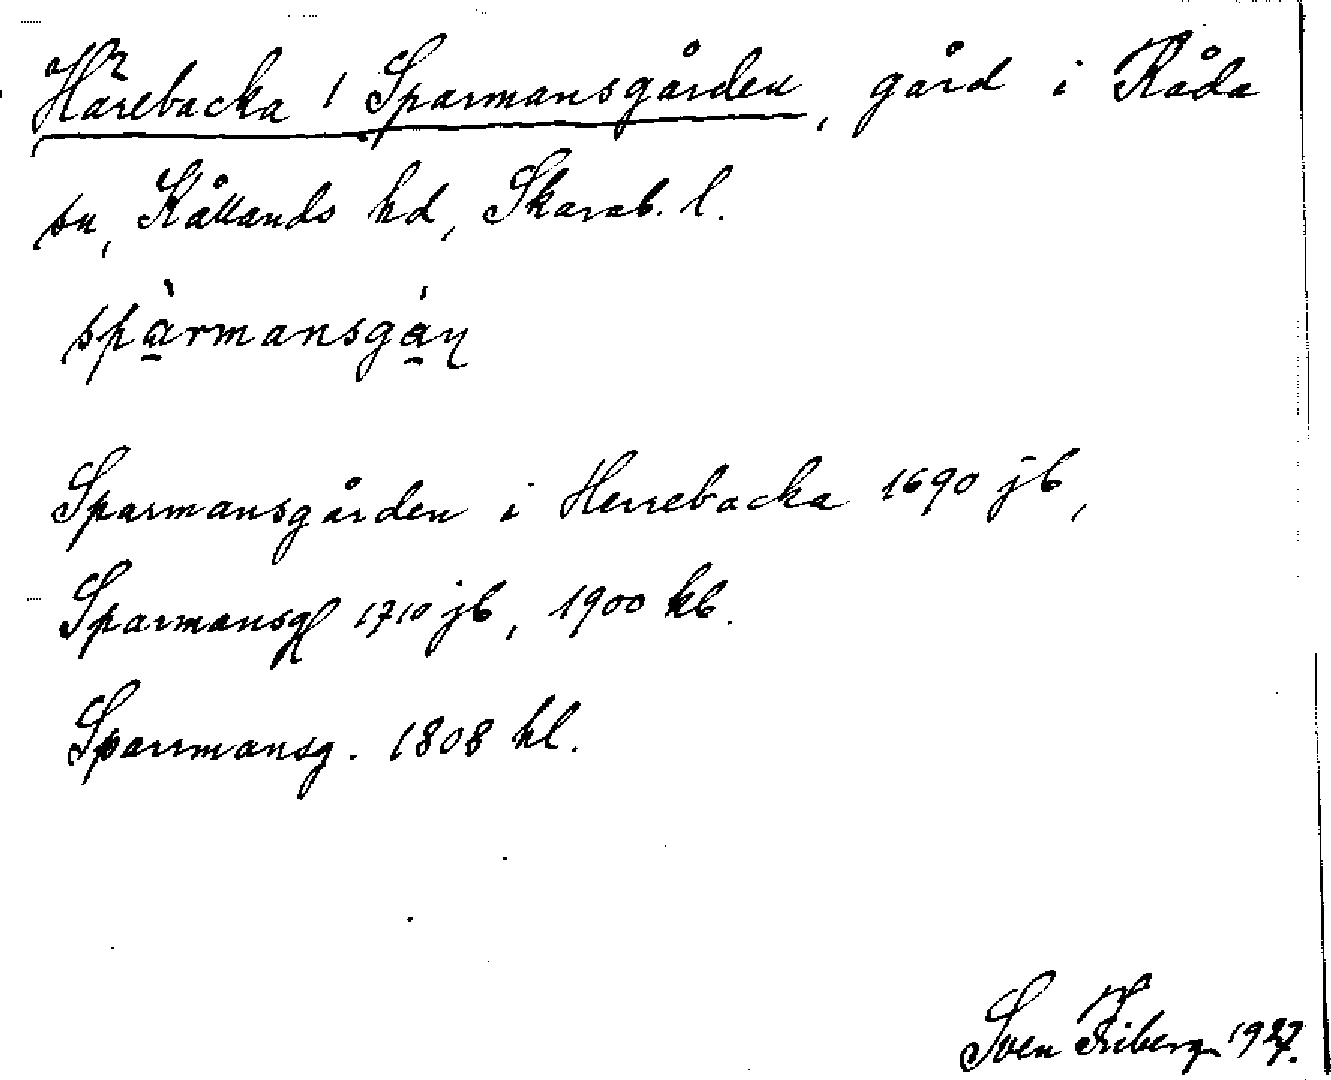 Härebacka / Sparmansgården, gård i Råda
sn, Kållands hd, Skarab. l.
spàrmansgán
Sparmansgården i Herrebacka 1690 jb,
Sparmansg 1710 jb, 1900 kb.
Sparrmansg. 1808 hl.
Sven Friberg 1927.